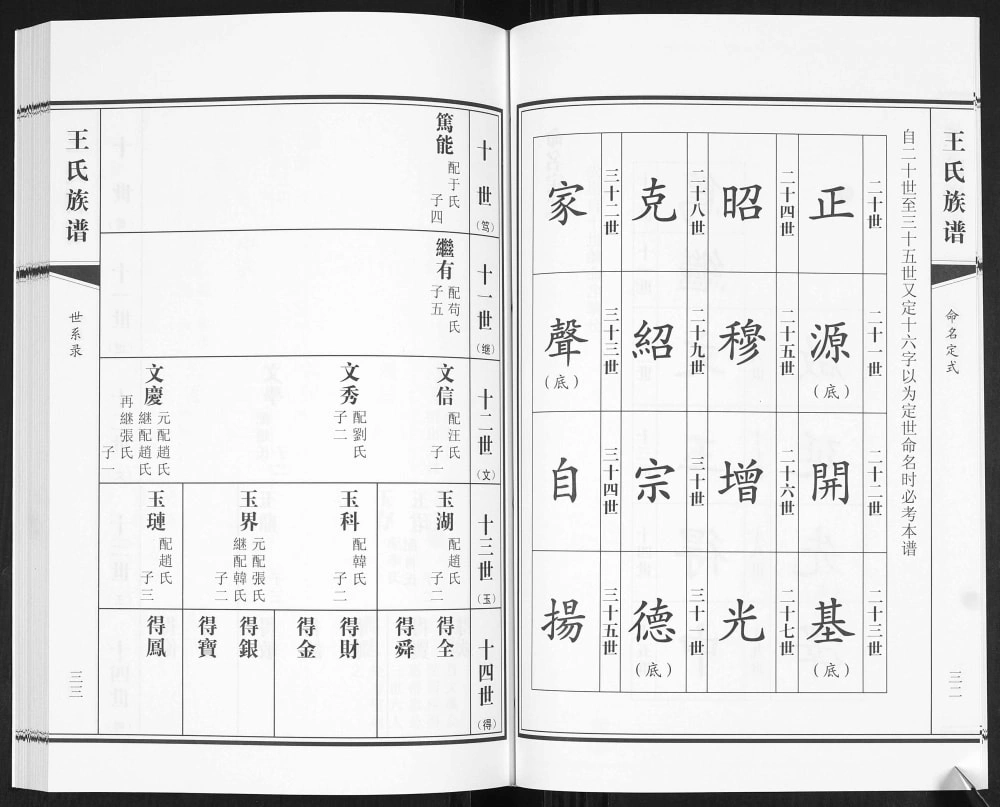 王氏族谱
命名定式
三二
自二十世至三十五世又定十六字以为定世命名时必考本谱
二十世
正
二十一世
源
(底)
二十二世
開
二十三世
基
(底)
二十四世
昭
二十五世
穆
二十六世
增
二十七世
光
二十八世
克
二十九世
紹
三十世
宗
三十一世
德
(底)
三十二世
家
三十三世
聲
(底)
三十四世
自
三十五世
揚
十世
(笃)
篤能
配于氏
子四
十一世
(继)
繼有
配苟氏
子五
十二世
(文)
文信
配汪氏
子一
文秀
配劉氏
子二
文慶
元配趙氏
繼配趙氏
再繼張氏
子一
十三世
(玉)
玉湖
配趙氏
子二
玉科
配韓氏
子二
玉界
元配張氏
繼配韓氏
子二
玉璉
配趙氏
子三
十四世
(得)
得全
得舜
得財
得金
得銀
得寶
得鳳
王氏族谱
世系录
三三